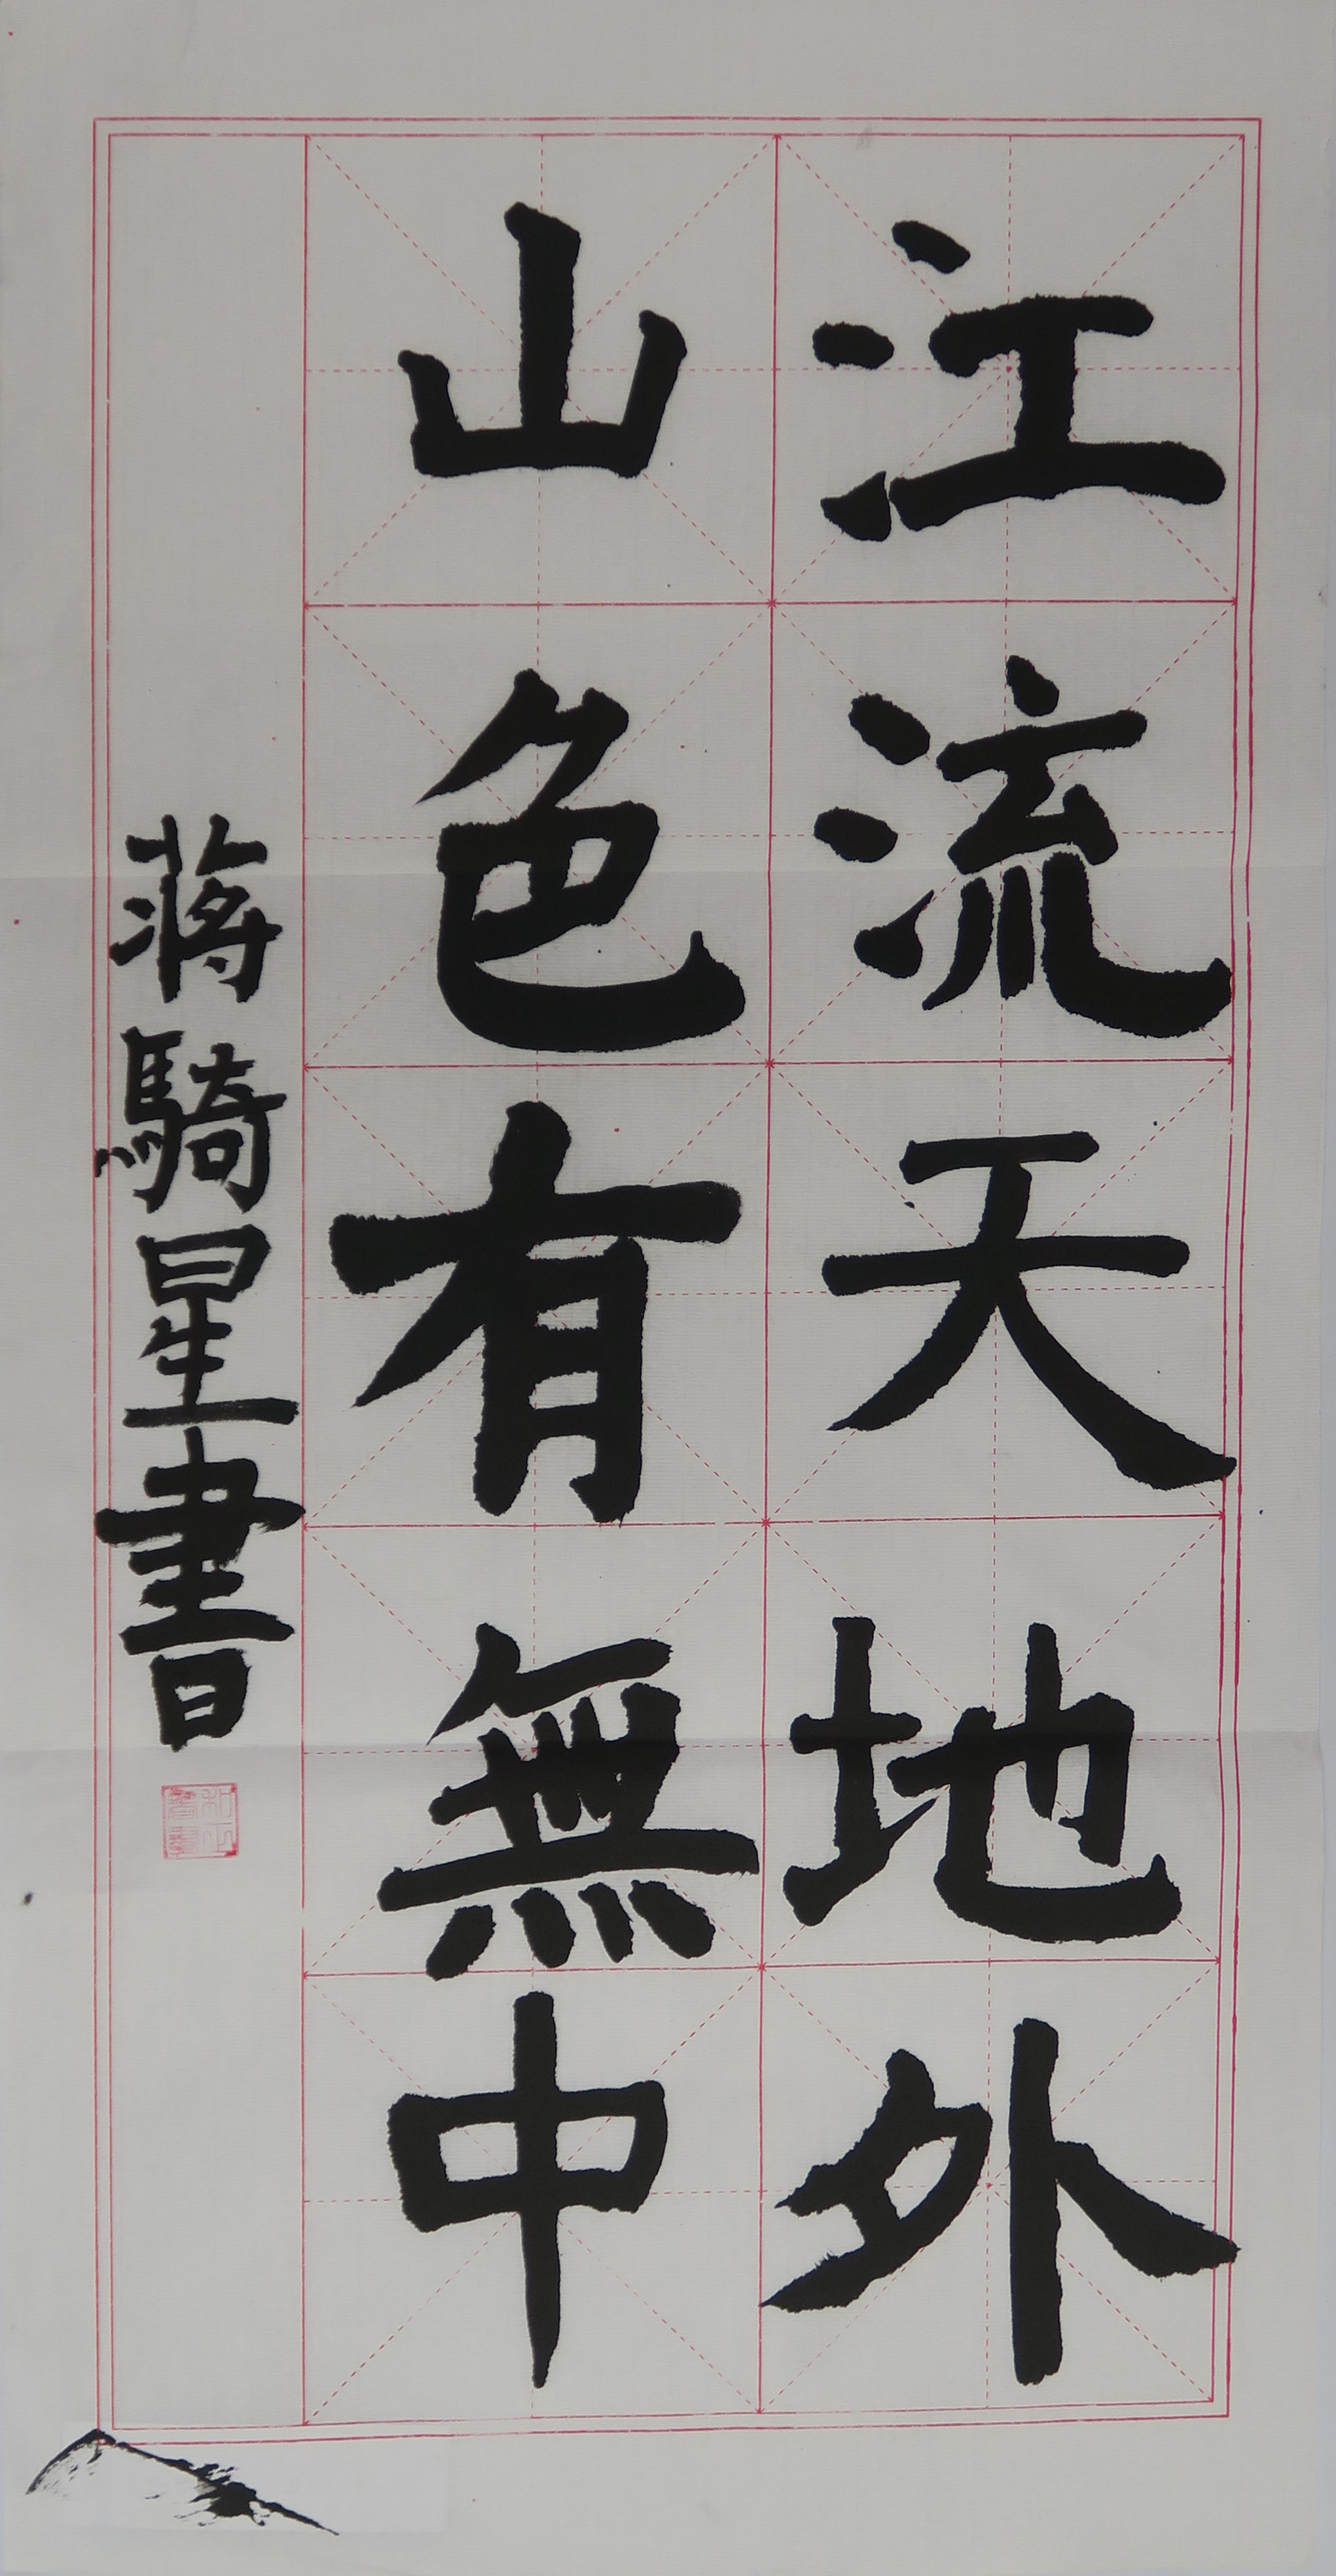 江流天地外
山色有無中
蔣騎星書